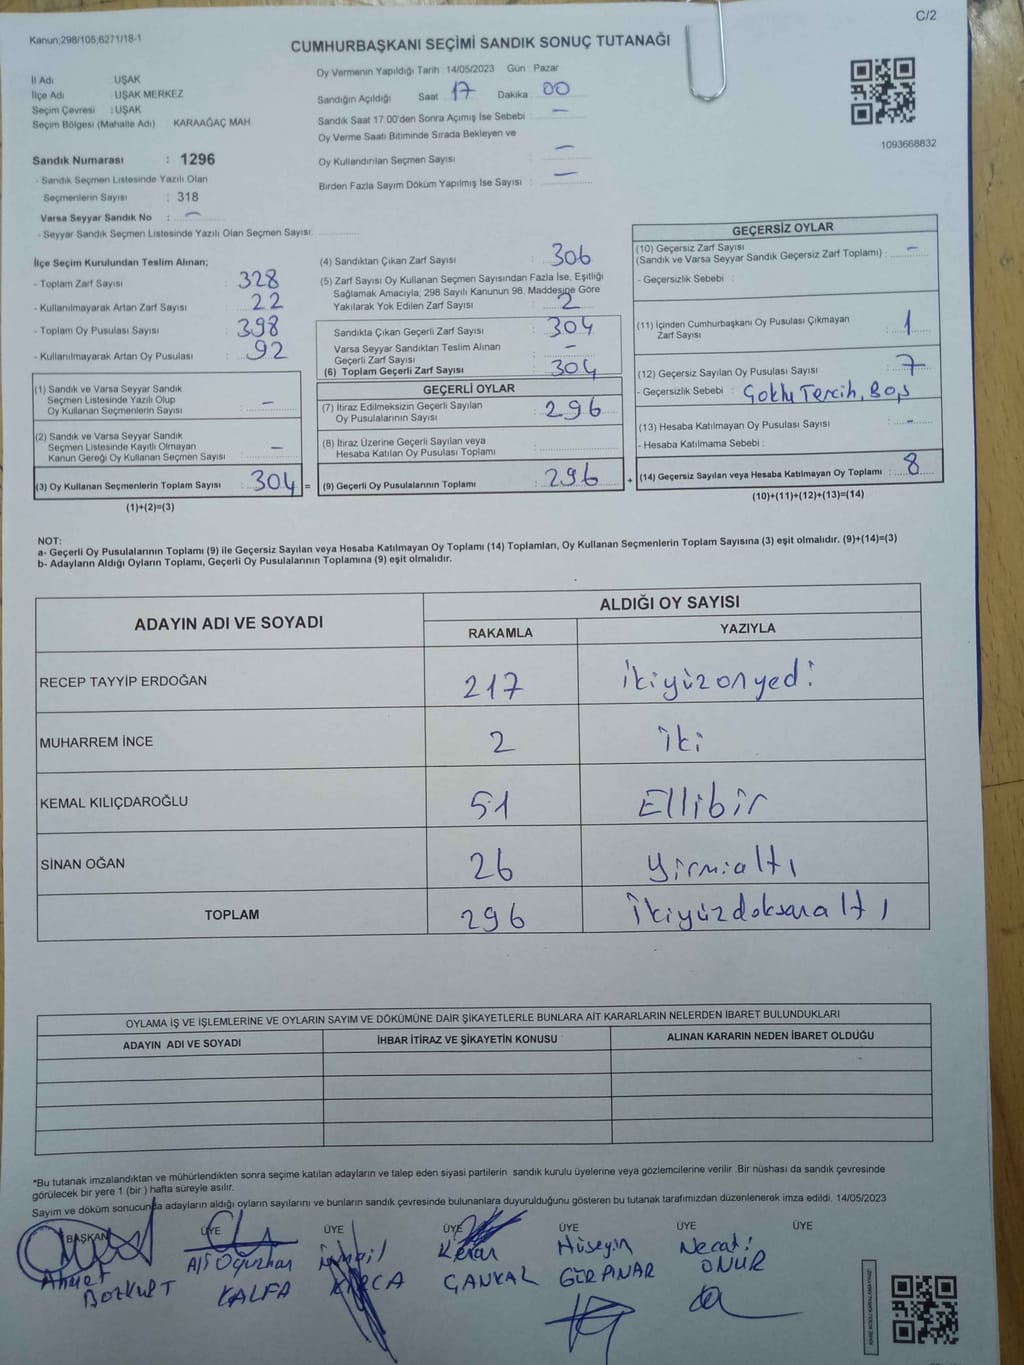 C/2
Kanun;298/105,6271/18-1
CUMHURBAŞKANI SEÇİMİ SANDIK SONUÇ TUTANAĞI
İl Adı UŞAK
İlçe Adı UŞAK MERKEZ
Seçim Çevresi : UŞAK
Seçim Bölgesi (Mahalle Adı) : KARAAĞAÇ MAH.
Oy Vermenin Yapıldığı Tarih : 14/05/2023 Gün : Pazar
Sandığın Açıldığı Saat 17 Dakika 00
Sandık Saat 17:00'den Sonra Açımış İse Sebebi : -
Oy Verme Saati Bitiminde Sırada Bekleyen ve
Oy Kullandırılan Seçmen Sayısı : -
Birden Fazla Sayım Döküm Yapılmış İse Sayısı : -
1093668832
Sandık Numarası : 1296
- Sandık Seçmen Listesinde Yazılı Olan
Seçmenlerin Sayısı : 318
Varsa Seyyar Sandık No : -
- Seyyar Sandık Seçmen Listesinde Yazılı Olan Seçmen Sayısı:
İlçe Seçim Kurulundan Teslim Alınan;
- Toplam Zarf Sayısı : 328
- Kullanılmayarak Artan Zarf Sayısı : 22
- Toplam Oy Pusulası Sayısı : 398
- Kullanılmayarak Artan Oy Pusulası : 92
(1) Sandık ve Varsa Seyyar Sandık
Seçmen Listesinde Yazılı Olup
Oy Kullanan Seçmenlerin Sayısı : -
(2) Sandık ve Varsa Seyyar Sandık
Seçmen Listesinde Kayıtlı Olmayan
Kanun Gereği Oy Kullanan Seçmen Sayısı : -
(3) Oy Kullanan Seçmenlerin Toplam Sayısı : 304 =
(1)+(2)=(3)
(4) Sandıktan Çıkan Zarf Sayısı : 306
(5) Zarf Sayısı Oy Kullanan Seçmen Sayısından Fazla İse, Eşitliği
Sağlamak Amacıyla, 298 Sayılı Kanunun 98. Maddesine Göre
Yakılarak Yok Edilen Zarf Sayısı : 2
Sandıkta Çıkan Geçerli Zarf Sayısı : 304
Varsa Seyyar Sandıktan Teslim Alınan
Geçerli Zarf Sayısı : -
(6) Toplam Geçerli Zarf Sayısı : 304
GEÇERLİ OYLAR
(7) İtiraz Edilmeksizin Geçerli Sayılan
Oy Pusulalarının Sayısı : 296
(8) İtiraz Üzerine Geçerli Sayılan veya
Hesaba Katılan Oy Pusulası Toplamı :
(9) Geçerli Oy Pusulalarının Toplamı : 296 +
GEÇERSİZ OYLAR
(10) Geçersiz Zarf Sayısı
(Sandık ve Varsa Seyyar Sandık Geçersiz Zarf Toplamı) : -
- Geçersizlik Sebebi :
(11) İçinden Cumhurbaşkanı Oy Pusulası Çıkmayan
Zarf Sayısı : 1
(12) Geçersiz Sayılan Oy Pusulası Sayısı : 7
- Geçersizlik Sebebi : Çoklu Tercih, Boş
(13) Hesaba Katılmayan Oy Pusulası Sayısı : -
- Hesaba Katılmama Sebebi :
(14) Geçersiz Sayılan veya Hesaba Katılmayan Oy Toplamı : 8
(10)+(11)+(12)+(13)=(14)
NOT:
a- Geçerli Oy Pusulalarının Toplamı (9) ile Geçersiz Sayılan veya Hesaba Katılmayan Oy Toplamı (14) Toplamları, Oy Kullanan Seçmenlerin Toplam Sayısına (3) eşit olmalıdır. (9)+(14)=(3)
b- Adayların Aldığı Oyların Toplamı, Geçerli Oy Pusulalarının Toplamına (9) eşit olmalıdır.
ADAYIN ADI VE SOYADI
ALDIĞI OY SAYISI
RAKAMLA YAZIYLA
RECEP TAYYİP ERDOĞAN 217 ikiyüzonyedi
MUHARREM İNCE 2 iki
KEMAL KILIÇDAROĞLU 51 Ellibir
SİNAN OĞAN 26 yirmialtı
TOPLAM 296 ikiyüzdoksanaltı
OYLAMA İŞ VE İŞLEMLERİNE VE OYLARIN SAYIM VE DÖKÜMÜNE DAİR ŞİKAYETLERLE BUNLARA AİT KARARLARIN NELERDEN İBARET BULUNDUKLARI
ADAYIN ADI VE SOYADI İHBAR İTİRAZ VE ŞİKAYETİN KONUSU ALINAN KARARIN NEDEN İBARET OLDUĞU
*Bu tutanak imzalandıktan ve mühürlendikten sonra seçime katılan adayların ve talep eden siyasi partilerin sandık kurulu üyelerine veya gözlemcilerine verilir. Bir nüshası da sandık çevresinde
görülecek bir yere 1 (bir ) hafta süreyle asılır.
Sayım ve döküm sonucunda adayların aldığı oyların sayılarını ve bunların sandık çevresinde bulunanlara duyurulduğunu gösteren bu tutanak tarafımızdan düzenlenerek imza edildi. 14/05/2023
BAŞKAN ÜYE ÜYE ÜYE ÜYE ÜYE ÜYE
Ahmet BOZKURT
Ali Oğuzhan KALFA
İsmail
Kenan ÇANKAL
Hüseyin GÜRPINAR
Necati ONUR